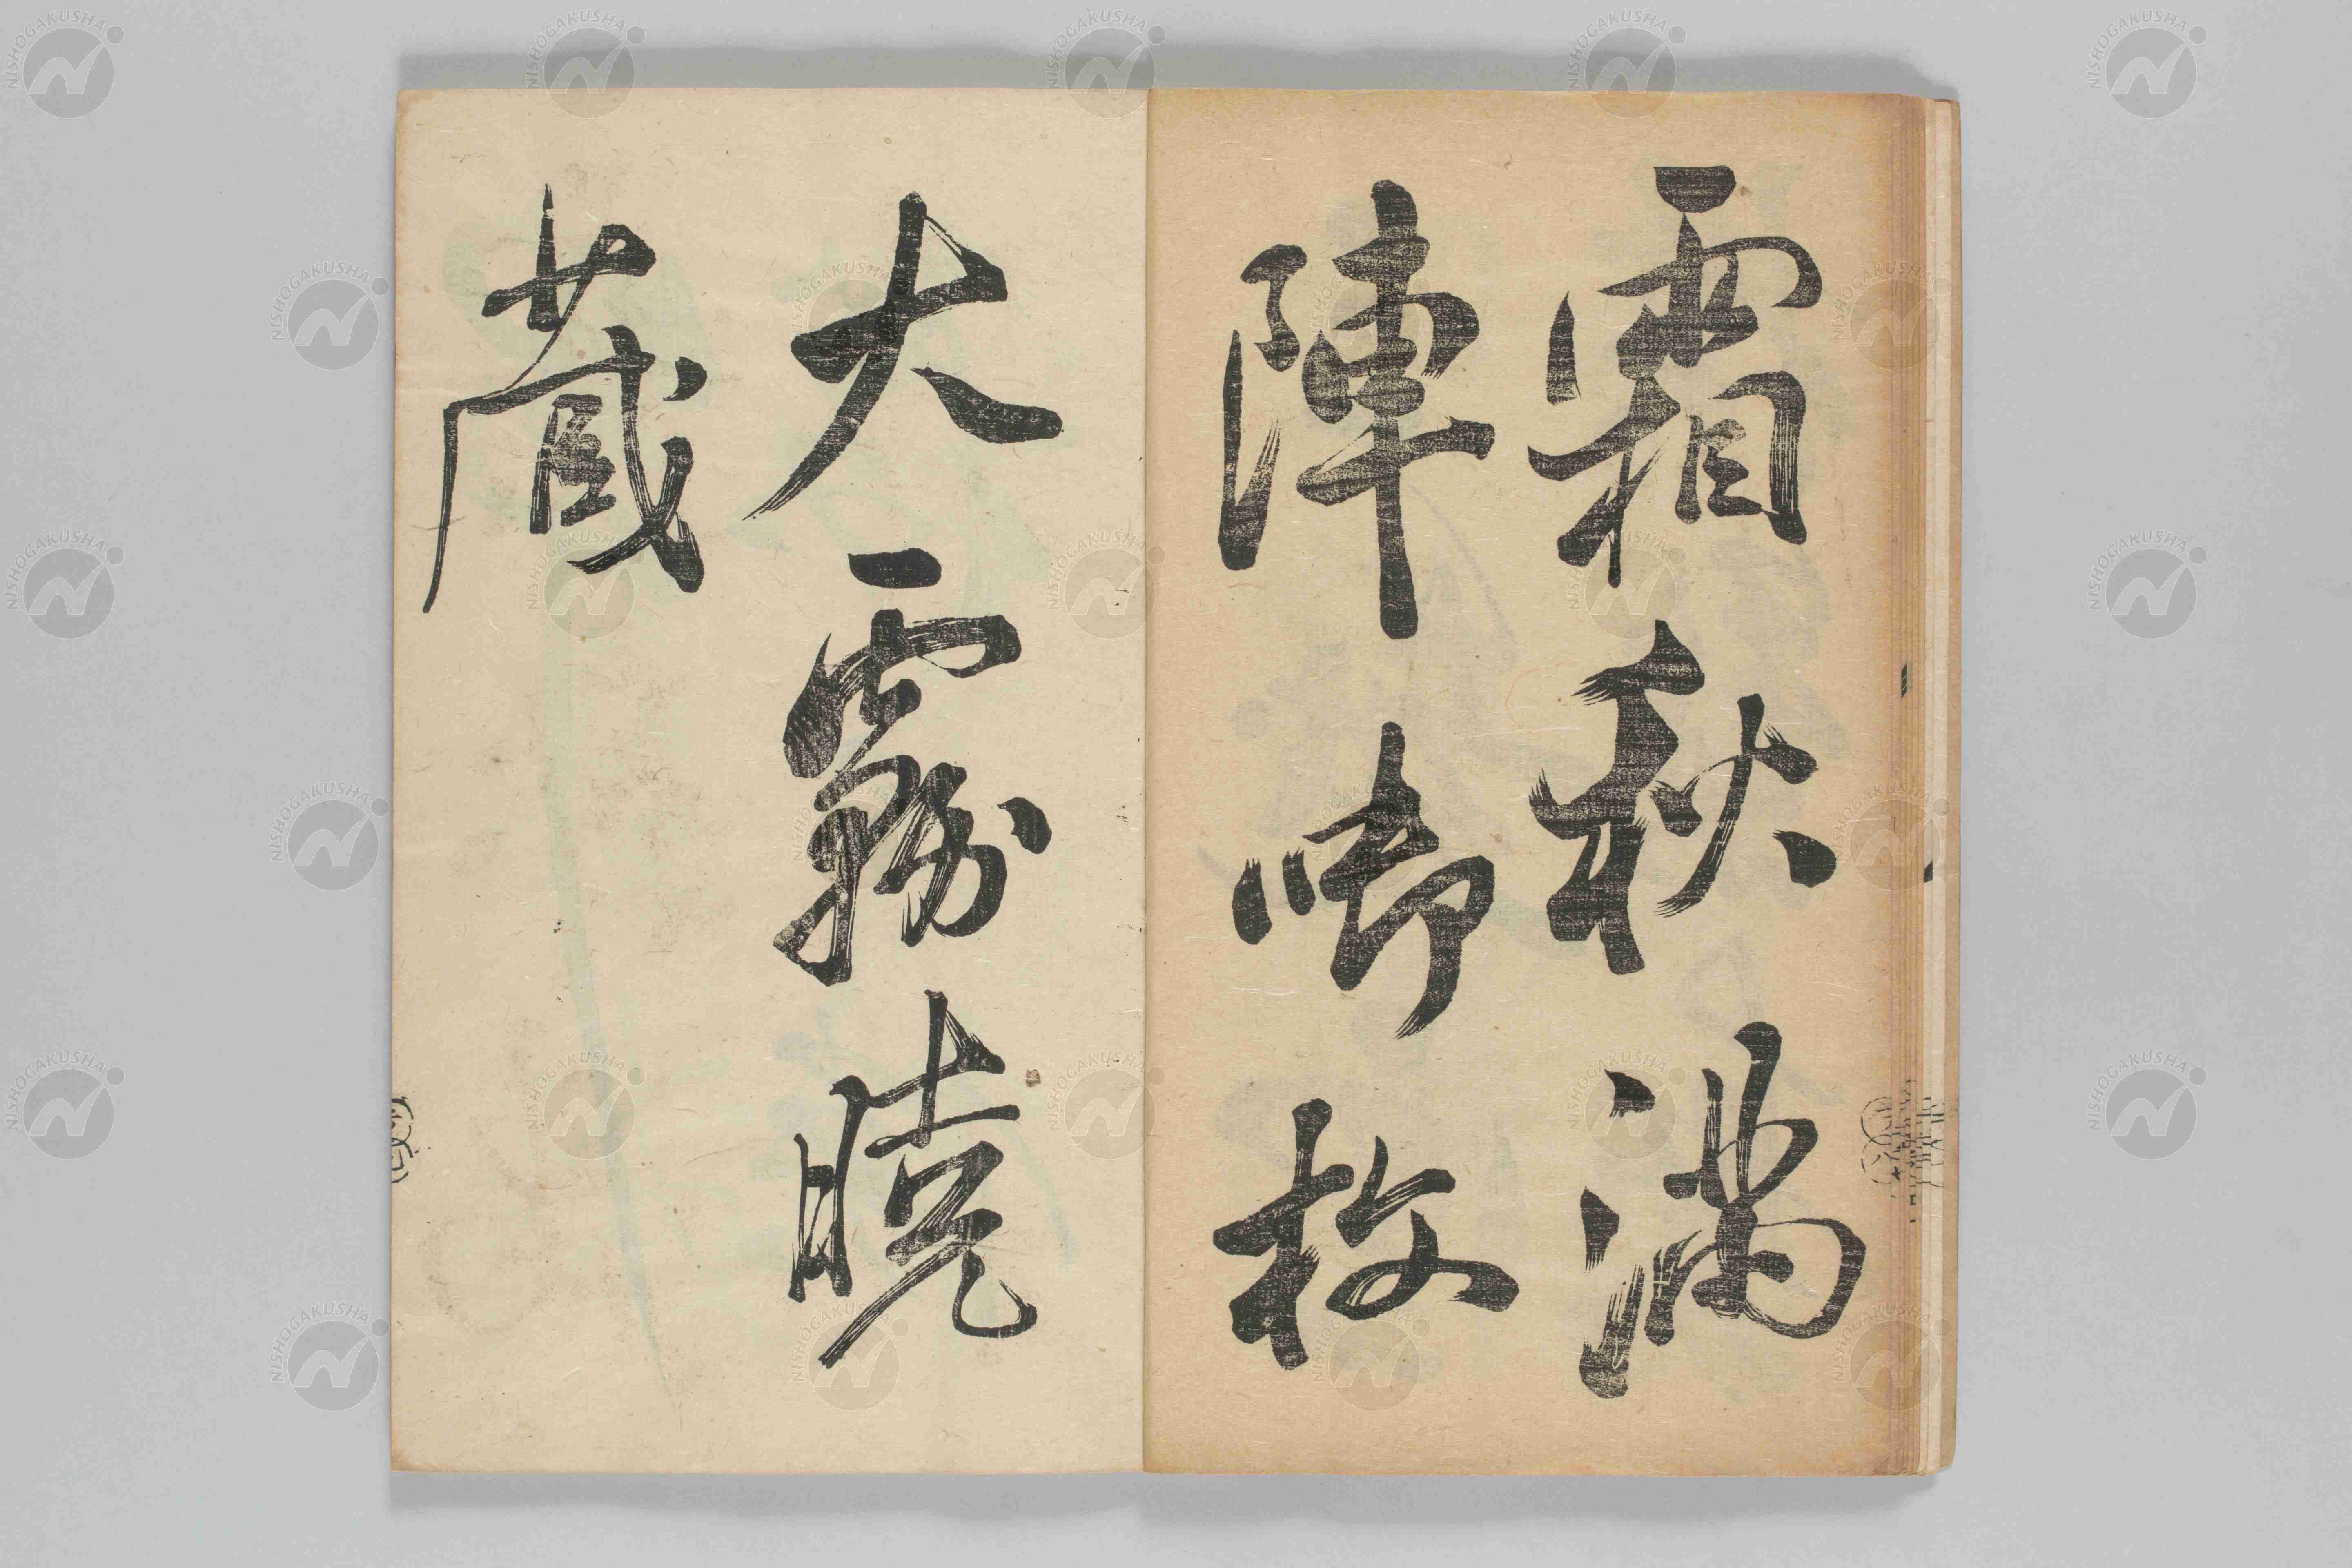 霜秋満
陣啣枚
大霧曉
蔵
NISHOGAKUSHA